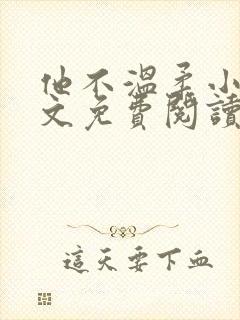 他不溫柔小
文免費閱讀
這天要下血